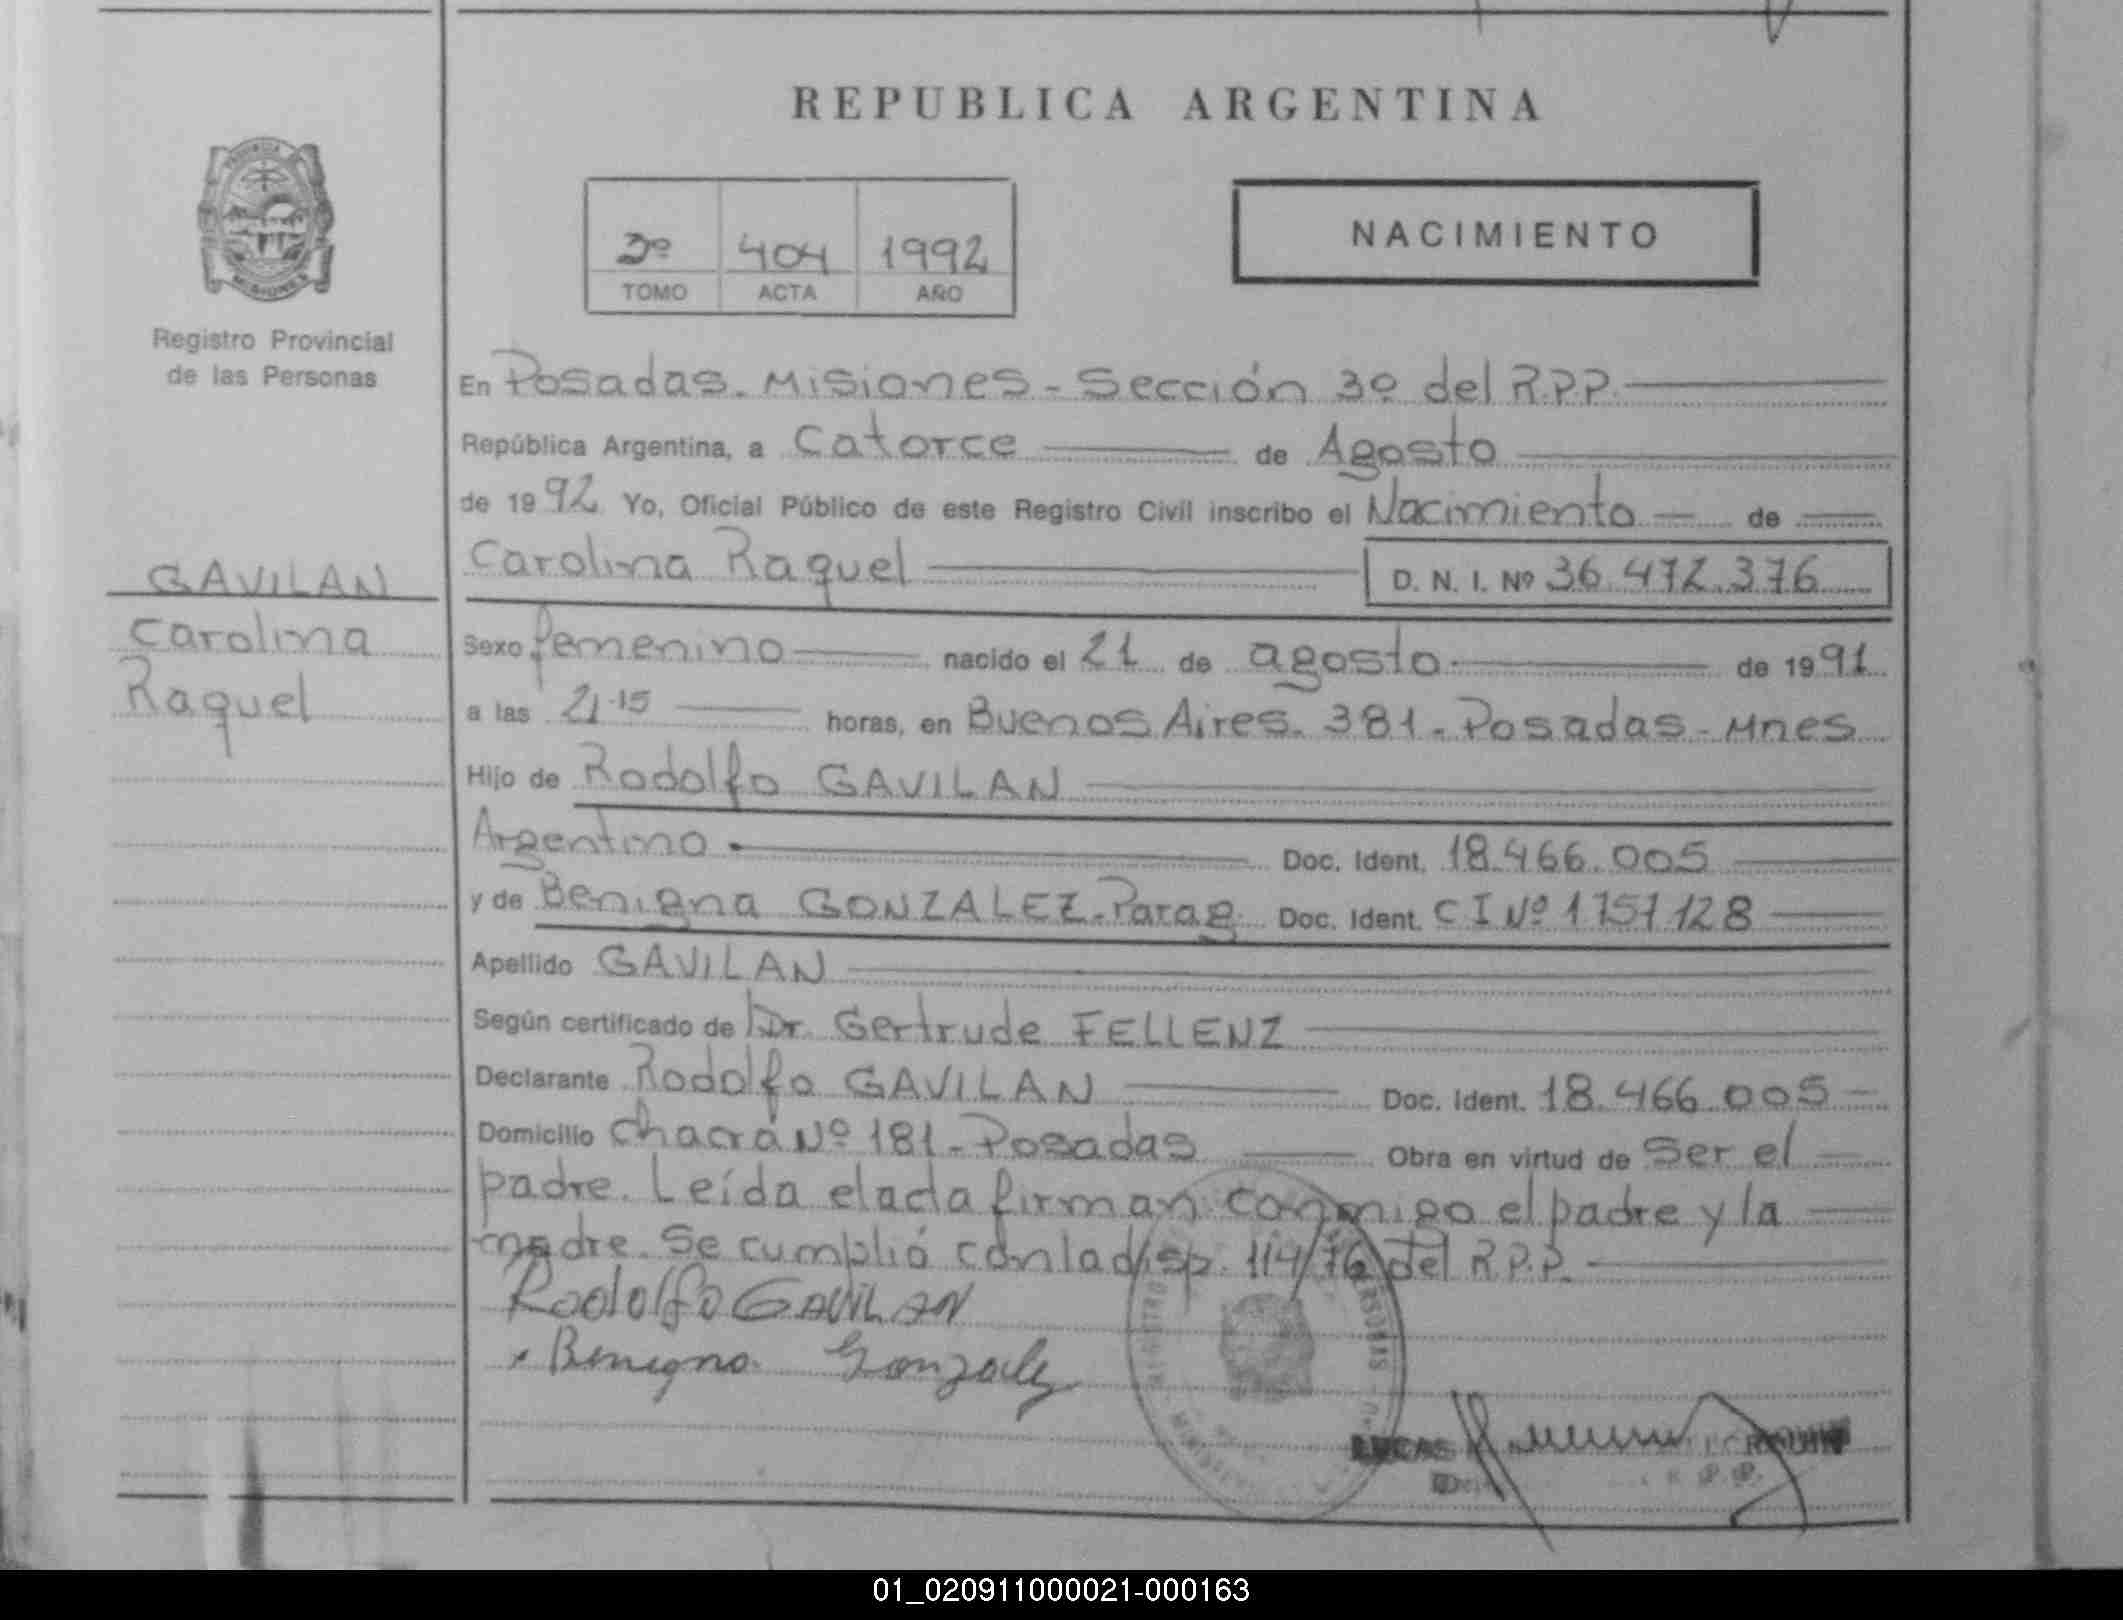 REPUBLICA ARGENTINA
PROVINCIA
MISIONES
Registro Provincial
de las Personas
2º 404 1992
TOMO ACTA AÑO
NACIMIENTO
GAVILAN
Carolina
Raquel
En Posadas. Misiones - Sección 3º del R.P.P.
República Argentina, a Catorce de Agosto
de 1992. Yo, Oficial Público de este Registro Civil inscribo el Nacimiento de
Carolina Raquel D. N. I. Nº 36.472.376
Sexo femenino nacido el 21 de agosto de 1991
a las 21.15 horas, en Buenos Aires. 381. Posadas - Mnes
Hijo de Rodolfo GAVILAN
Argentino Doc. Ident. 18.466.005
y de Benigna GONZALEZ-Parag. Doc. Ident. C I Nº 1757128
Apellido GAVILAN
Según certificado de Dr. Gertrude FELLENZ
Declarante Rodolfo GAVILAN Doc. Ident. 18.466.005
Domicilio Chacra Nº 181 - Posadas Obra en virtud de Ser el
padre. Leída el acta firman conmigo el padre y la
madre. Se cumplió con la disp. 114/76 del R.P.P.
Rodolfo GAVILAN
Benigna Gonzalez
LUCAS
01_020911000021-000163